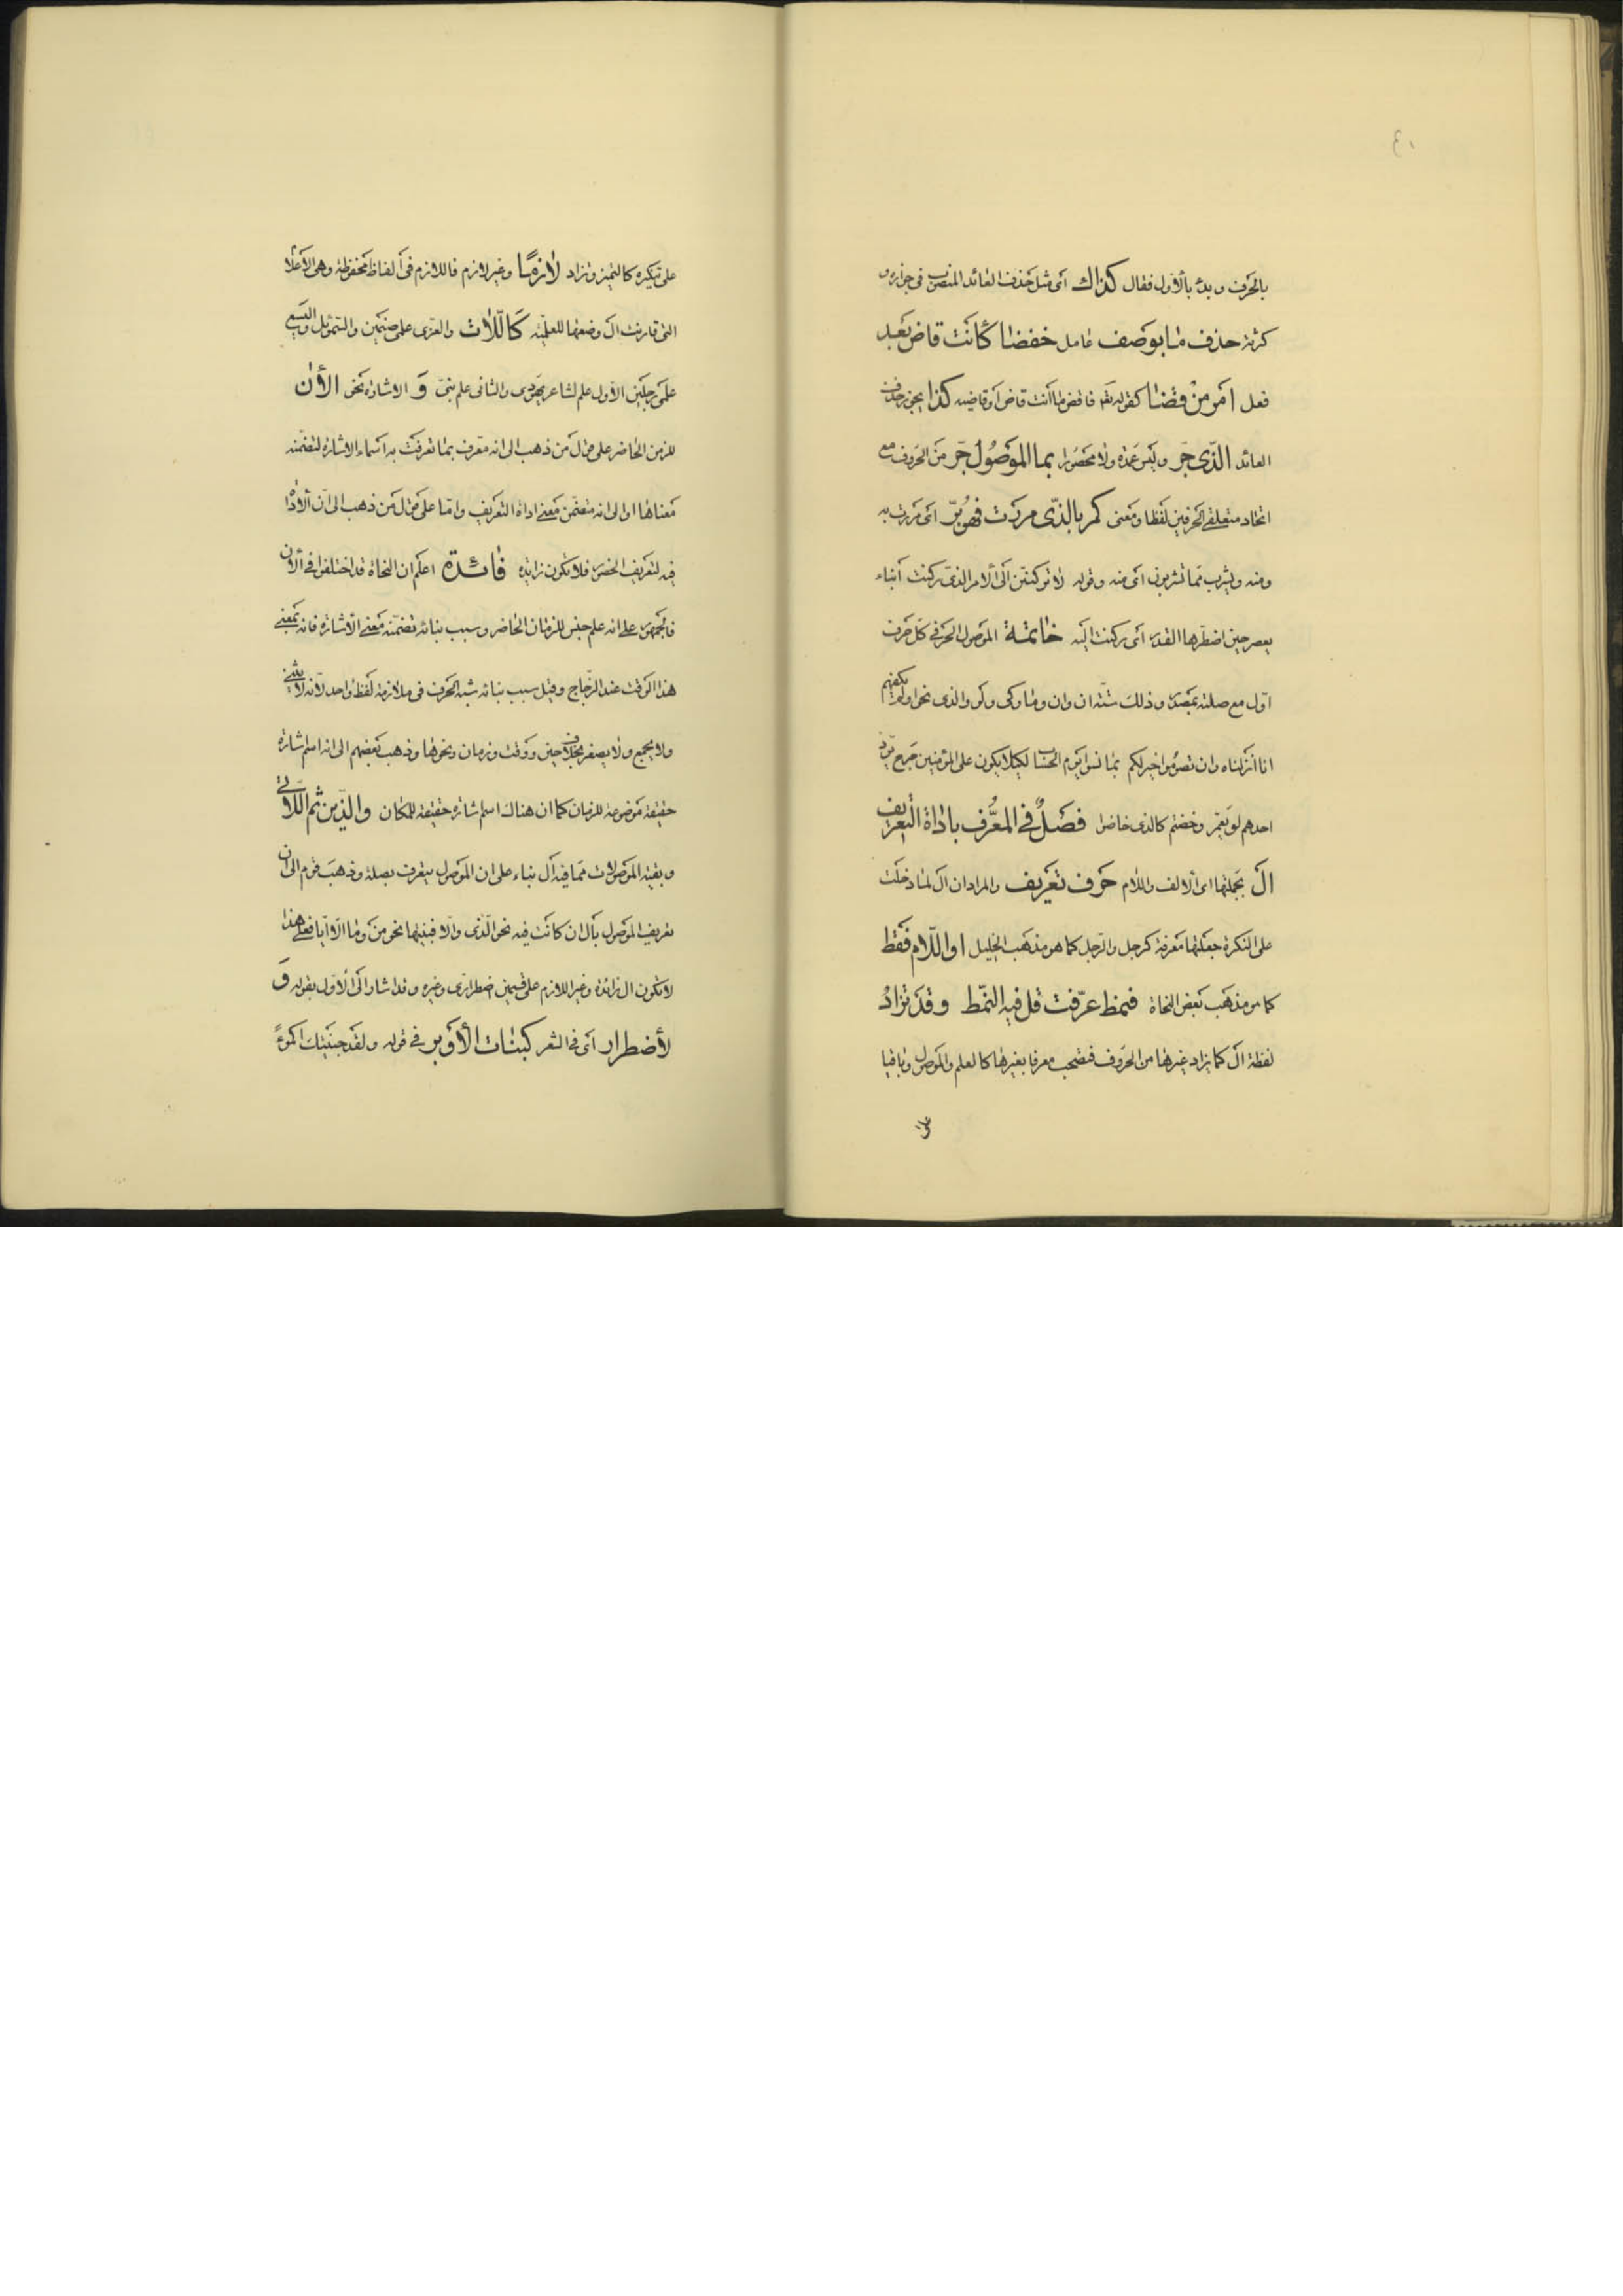 ٤٠
بالحرف وبدء بالأول فقال كذاك اى مثل حذف العائد المنصوب فى جوازه و
كثرته حذف ما بوصف عامل خفضا كأنت قاض بعد
فعل امر من قضا كقوله تعه فاقض ما انت قاض اى قاضيه كذا يجوز حذف
العائد الّذى جرّ وليس عمدة ولا محصورا بما الموصول جرّ من الحروف مع
اتحاد متعلقى الحرفين لفظا ومعنى كمر بالذّى مررت فهو برّ اى مررت به
ومنه ويشرب ممّا تشربون اى منه وقوله لا تركننّ الى الامر الذى ركنت ابناء
يعصر حين اضطرها القدر اى ركنت اليه خاتمة الموصول الحرفى كلّ حرف
اوّل مع صلته بمصدر وذلك ستّة ان وان وما وكى ولو والذى نحو اولم يكفهم
انا انزلناه وان تصوموا خير لكم بما نسوا يوم الحساب لكيلا يكون على المؤمنين حرج يودّ
احدهم لو يعمّر وخضتم كالذى خاضوا فصل فى المعرّف باداة التعريف
ال بجملتها اى الالف واللام حرف تعريف والمراد ان ال لما دخلت
على النكرة جعلتها معرفة كرجل والرجل كما هو مذهب الخليل او اللّام فقط
كما هو مذهب بعض النحاة فنمط عرّفت قل فيه النمّط وقد تزاد
لفظة ال كما يزاد غيرها من الحروف فتصحب معرفا بغيرها كالعلم والموصول وباقيا
على
على تنكيره كالتميز وتزاد لازما وغير لازم فاللازم فى الفاظ محفوظة وهى الاعلام
التى قارنت ال وضعها للعلميّة كاللّات والعزى علمى صنمين والسّموئل واليسع
علمى رجلين الاول علم لشاعر يهودى والثانى علم نبىّ و الاشارة نحو الأن
للزمن الحاضر على قول من ذهب الى انه معّرف بما تعرفت به اسماء الاشارة لتضمّنه
معناها او الى انه متضمّن معنى اداة التعريف وامّا على قول من ذهب الى انّ الاداة
فيه لتعريف الحضور فلا تكون زايدة فائدة اعلم ان النحاة قد اختلفوا فى الان
فالجمهور على انه علم جنس للزمان الحاضر وسبب بنائه تضمّنه معنى الاشارة فانه بمعنى
هذا الوقت عند الزجّاج وقيل سبب بنائه شبه الحرف فى ملازمة لفظ واحد لأنه لا يثنى
ولا يجمع ولا يصغر بخلاف حين ووقت وزمان ونحوها وذهب بعضهم الى انه اسم اشارة
حقيقة موضوعة للزمان كما ان هناك اسم اشارة حقيقة للمكان والّذين ثم اللّاتى
وبقية الموصولات ممّا فيه ال بناء على ان الموصول يتعرف بصلة وذهب قوم الى ان
تعريف الموصول بال ان كانت فيه نحو الّذى والّا فبنيتها نحو من وما الّا ايّا فعلى هذا
لا تكون ال زائدة وغير اللازم على قسمين اضطرارى وغيره وقد اشار الى الأوّل بقوله و
لأضطرار اى فى الشعر كبنات الأوبر فى قوله ولقد جنيتك اكموءً